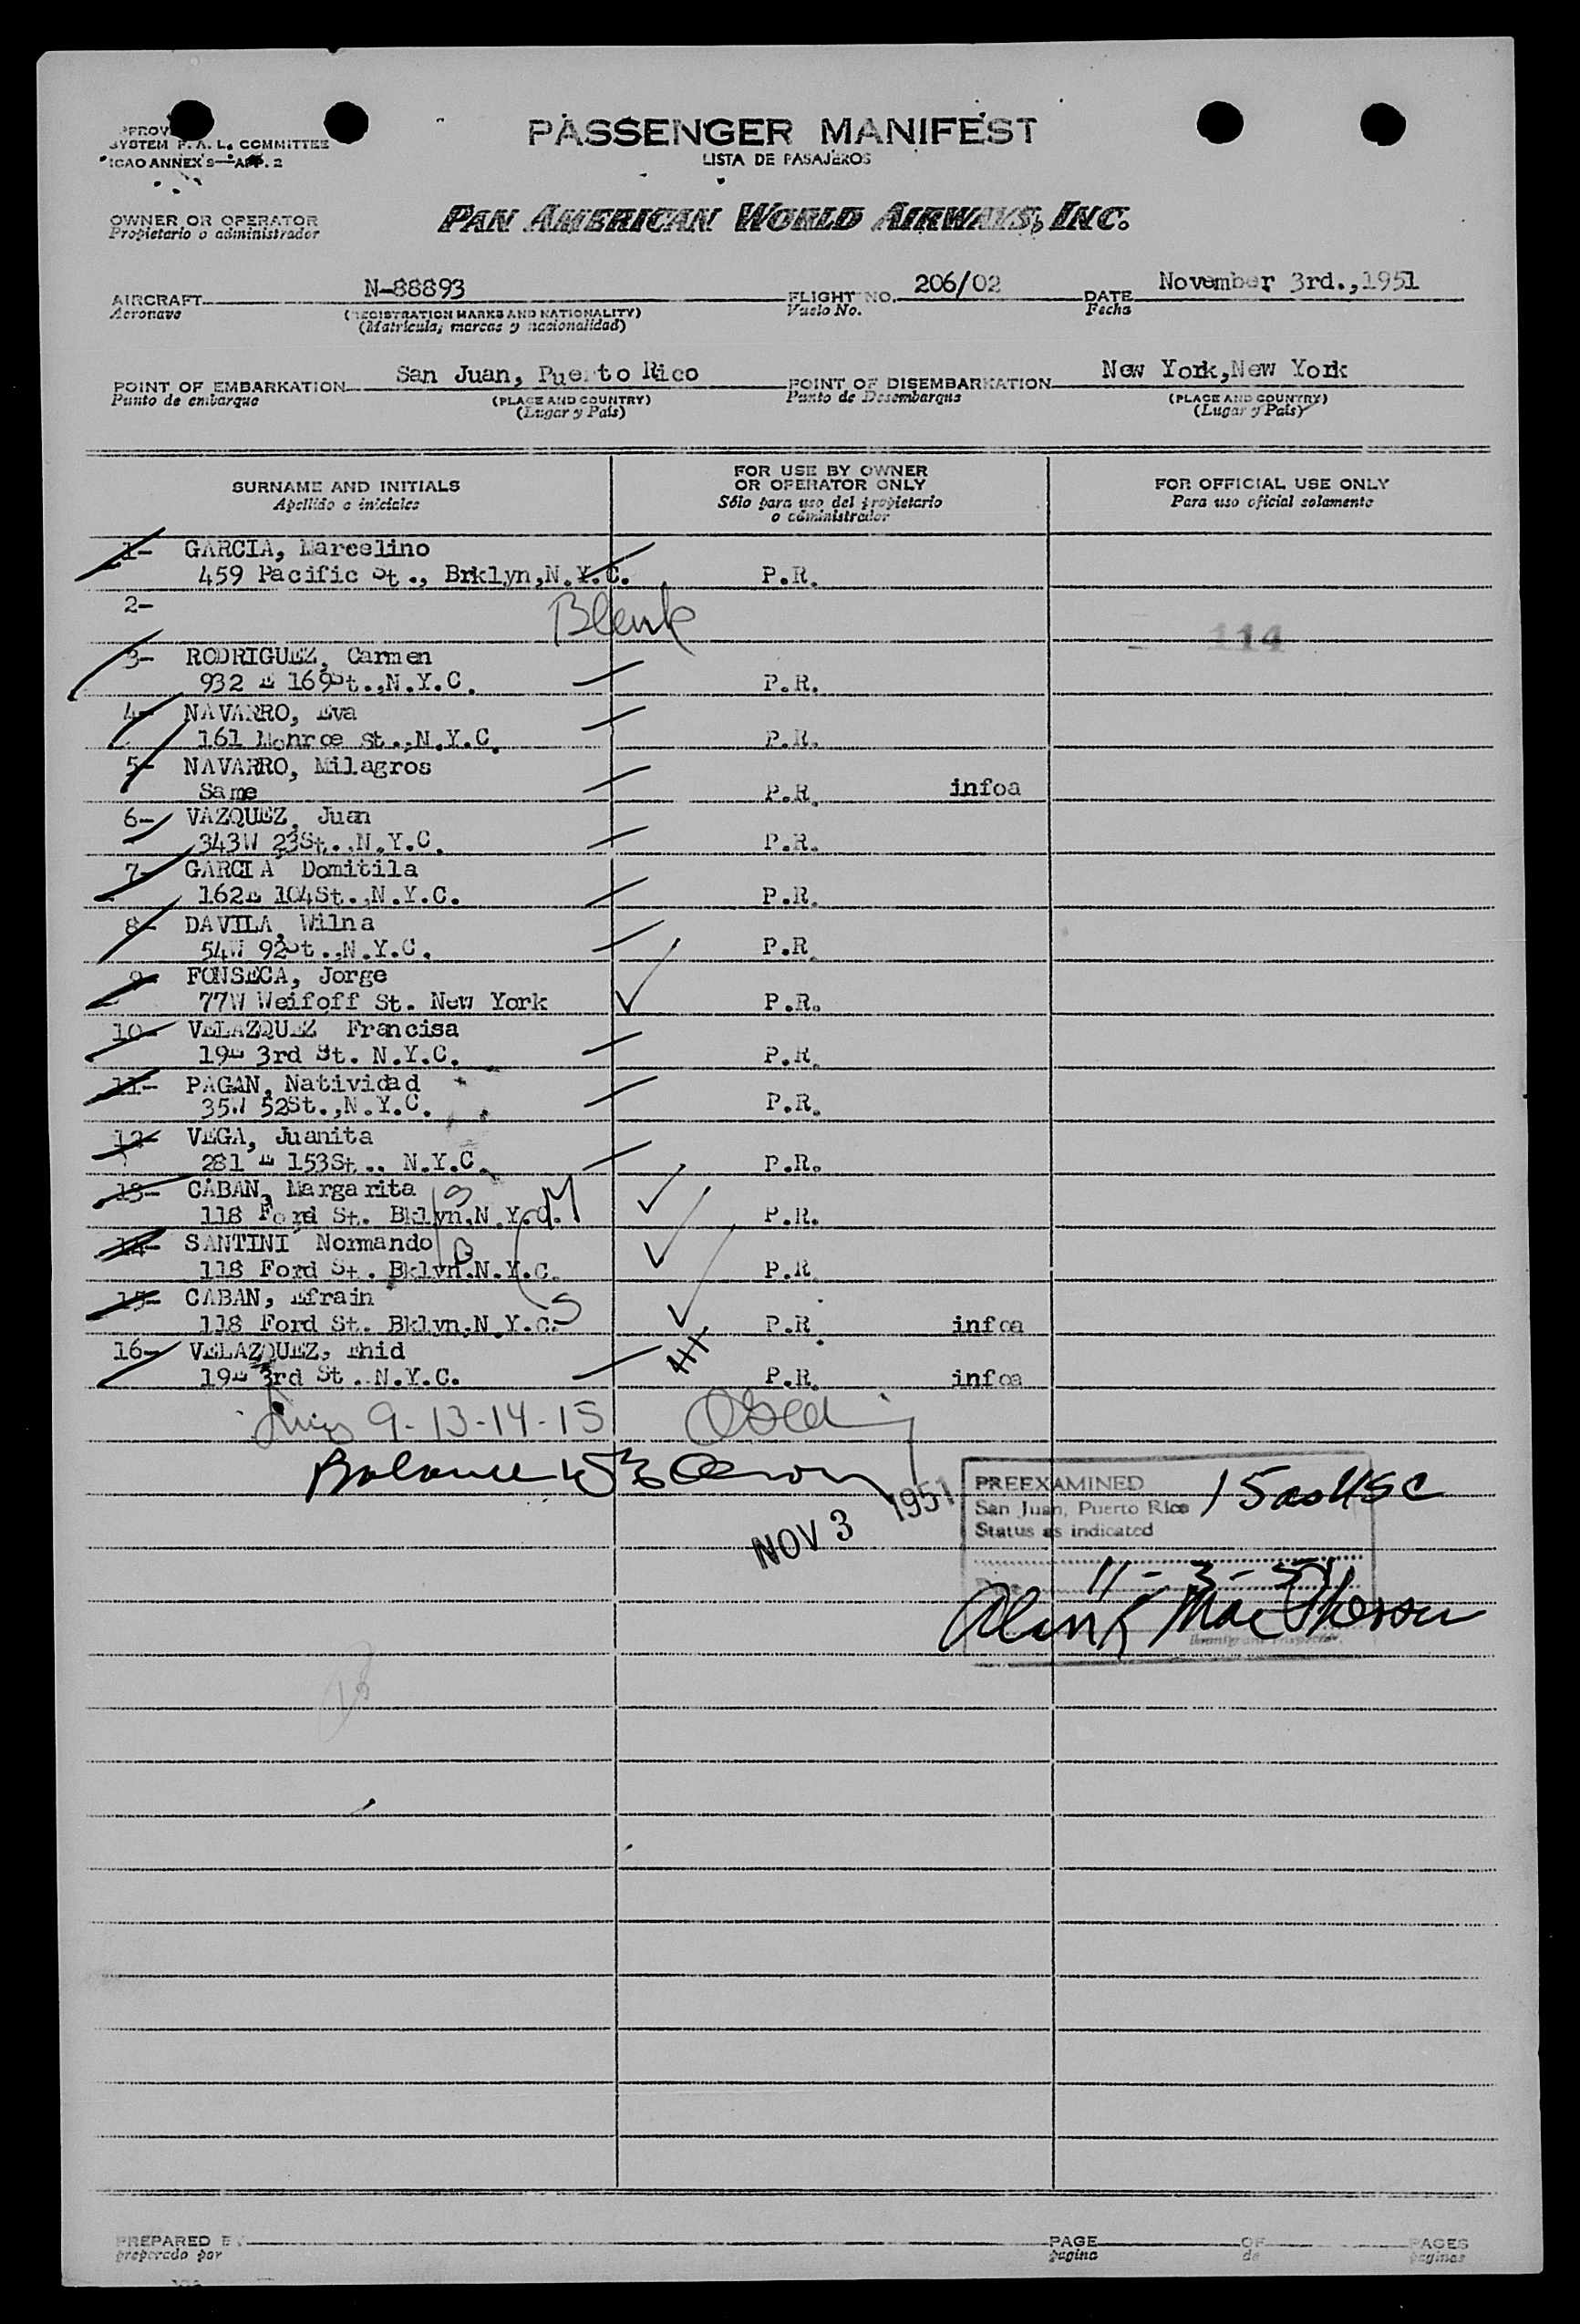 PASSENGER MANIFEST
SYSTEM P. A. L. COMMITTEE
LISTA DE PASAJEROS
ICAO ANNEX 9—APP. 2
OWNER OR OPERATOR
Propietario o administrador
PAN AMERICAN WORLD AIRWAYS, INC.
AIRCRAFT N-88893 FLIGHT NO. 206/02 DATE November 3rd.,1951
Aeronave (REGISTRATION MARKS AND NATIONALITY) Vuelo No. Fecha
(Matricula; marcas y nacionalidad)
POINT OF EMBARKATION San Juan, Puerto Rico POINT OF DISEMBARKATION New York,New York
Punto de embarque (PLACE AND COUNTRY) Punto de Desembarque (PLACE AND COUNTRY)
(Lugar y País) (Lugar y País)
SURNAME AND INITIALS FOR USE BY OWNER OR OPERATOR ONLY FOR OFFICIAL USE ONLY
Apellido e iniciales Sólo para uso del propietario o administrador Para uso oficial solamente
1- GARCIA, Marcelino
459 Pacific St., Brklyn,N.Y.C. P.R.
2-
Blank
114
3- RODRIGUEZ, Carmen
932 E 169St.,N.Y.C. P.R.
4- NAVARRO, Eva
161 Monroe St.,N.Y.C. P.R.
5- NAVARRO, Milagros
Same P.R. infoa
6- VAZQUEZ, Juan
343W 23St.,N.Y.C. P.R.
7- GARCIA Domitila
162E 104St.,N.Y.C. P.R.
8- DAVILA, Wilna
54W 92St.,N.Y.C. P.R.
9- FONSECA, Jorge
77W Weifoff St. New York P.R.
10- VELAZQUEZ Francisa
19E 3rd St. N.Y.C. P.R.
11- PAGAN, Natividad
35W 52St.,N.Y.C. P.R.
12- VEGA, Juanita
281 E 153St., N.Y.C. P.R.
13- CABAN, Margarita
118 Ford St. Bklyn,N.Y.C. P.R.
14- SANTINI Normando
118 Ford St. Bklyn.N.Y.C. P.R.
15- CABAN, Efrain
118 Ford St. Bklyn,N.Y.C. P.R. infoa
16- VELAZQUEZ, Enid
19E 3rd St., N.Y.C. P.R. infoa
9-13-14-15
Balance
NOV 3 1951
PREEXAMINED 15 as USC
San Juan, Puerto Rico
Status as indicated
Date 11-3-51
Immigrant Inspector
PREPARED BY PAGE OF PAGES
preparado por pagina de paginas